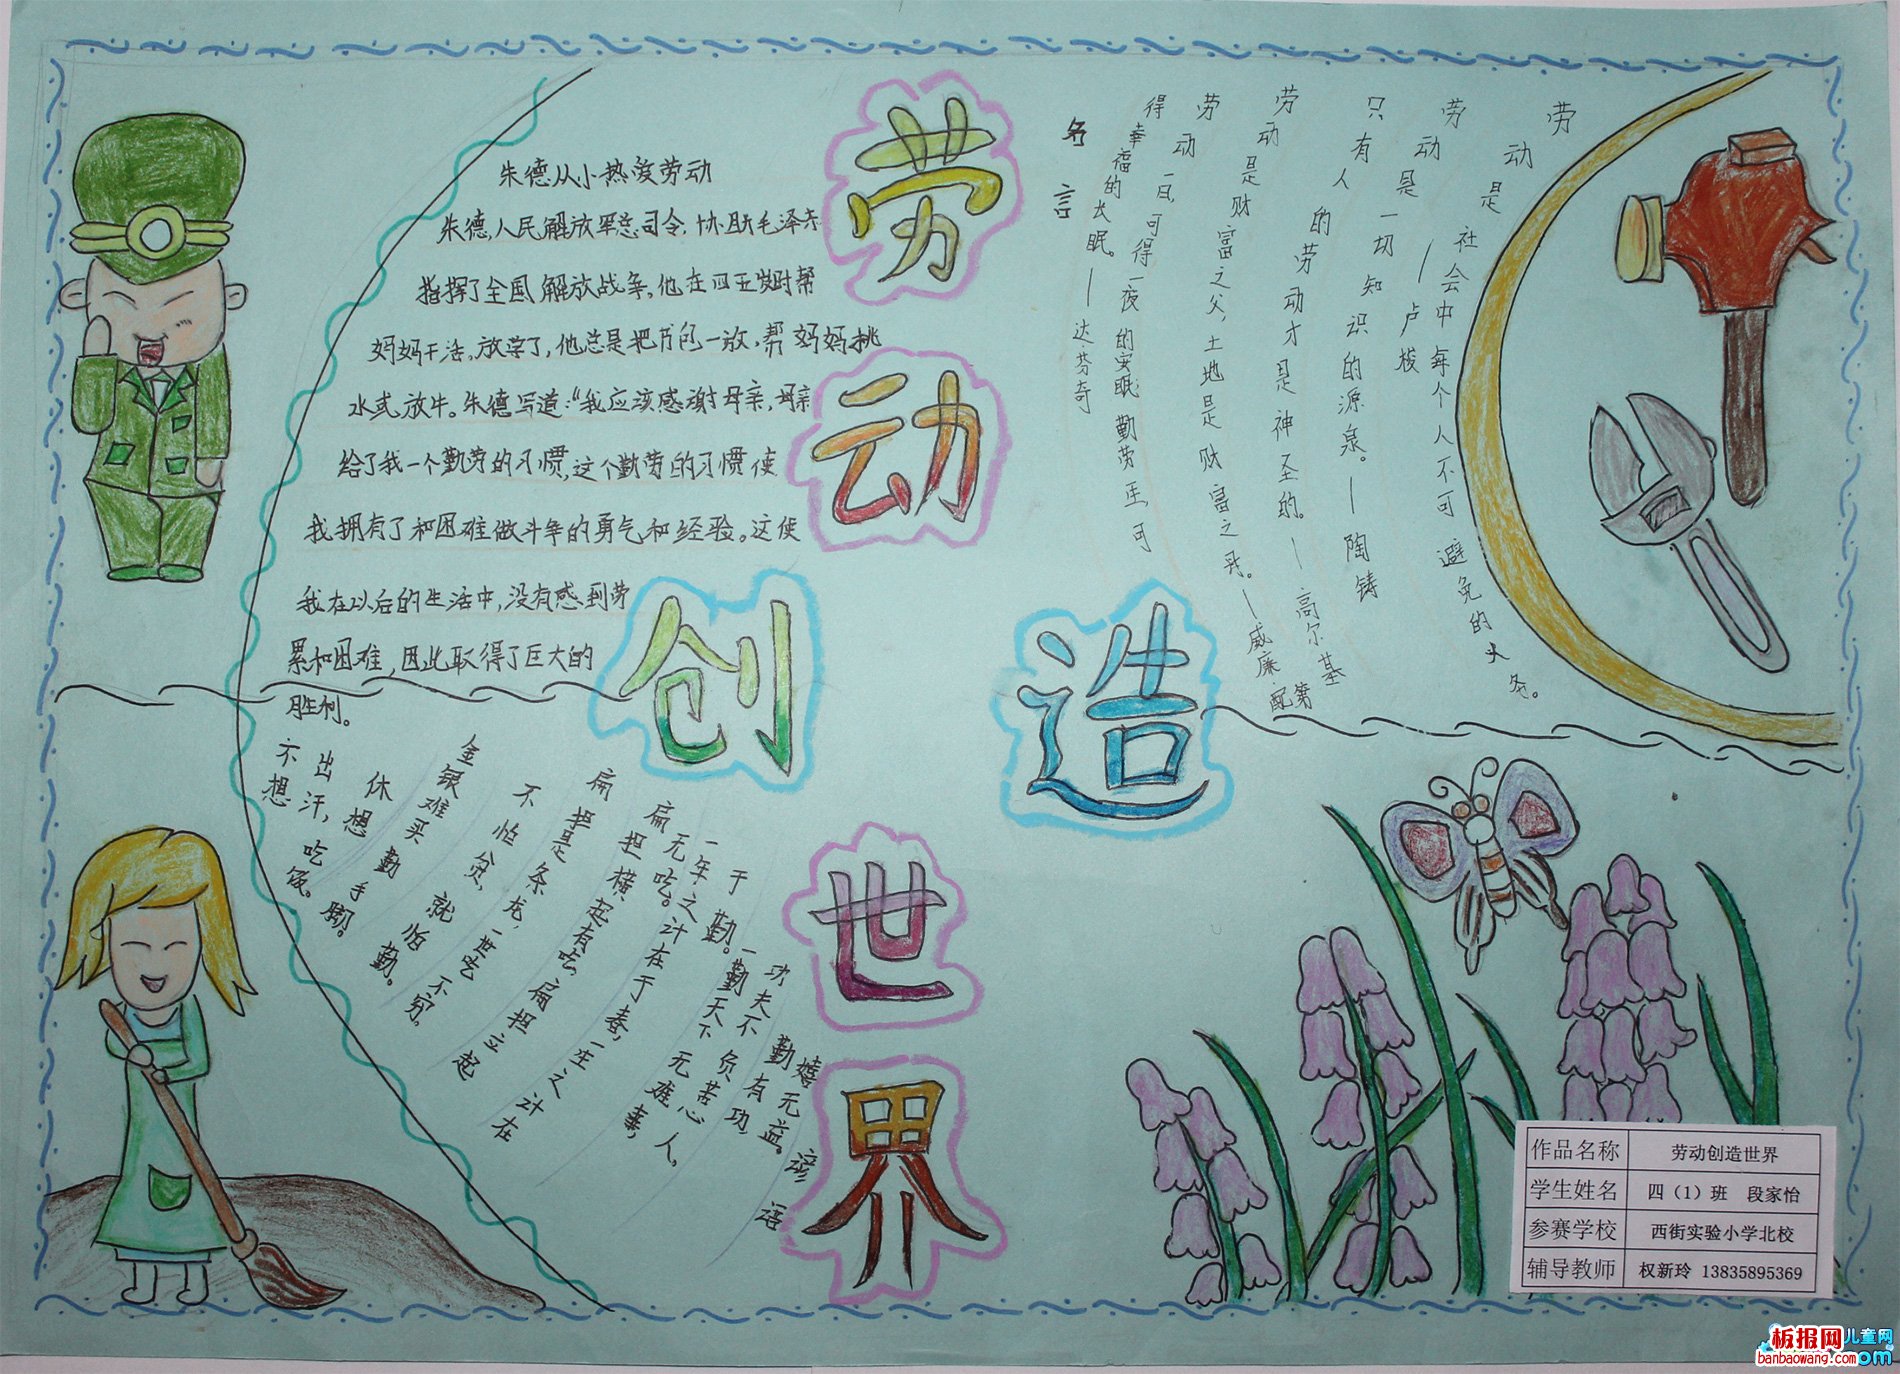 劳动
创造
世界
朱德从小热爱劳动
朱德,人民解放军总司令,协助毛泽东
指挥了全国解放战争,他在四五岁时帮
妈妈干活,放学了,他总是把书包一放,帮妈妈挑
水或放牛。朱德写道:“我应该感谢母亲,母亲
给了我一个勤劳的习惯,这个勤劳的习惯使
我拥有了和困难做斗争的勇气和经验。这使
我在以后的生活中,没有感到劳
累和困难,因此取得了巨大的
胜利。
名言
劳动一日,可得一夜的安眠 勤劳一生,可
得幸福的长眠。——达芬奇
劳动是财富之父,土地是财富之母。——威廉·配第
只有人的劳动才是神圣的。——高尔基
劳动是一切知识的源泉。——陶铸
劳动是社会中每个人不可避免的义务。
——卢梭
谚语
嬉无益。
勤有功,
功夫不负苦心人,
一勤天下无难事,
一年之计在于春,一生之计在
于勤。
扁担横起有吃,扁担立起
无吃。
扁担是条龙,一世吃不穷。
不怕贫,就怕勤。
金银难买勤手脚。
休想
不想出汗,吃饭。
作品名称 劳动创造世界
学生姓名 四（1）班 段家怡
参赛学校 西街实验小学北校
辅导教师 权新玲 13835895369
板报网儿童网
banbaowang.com